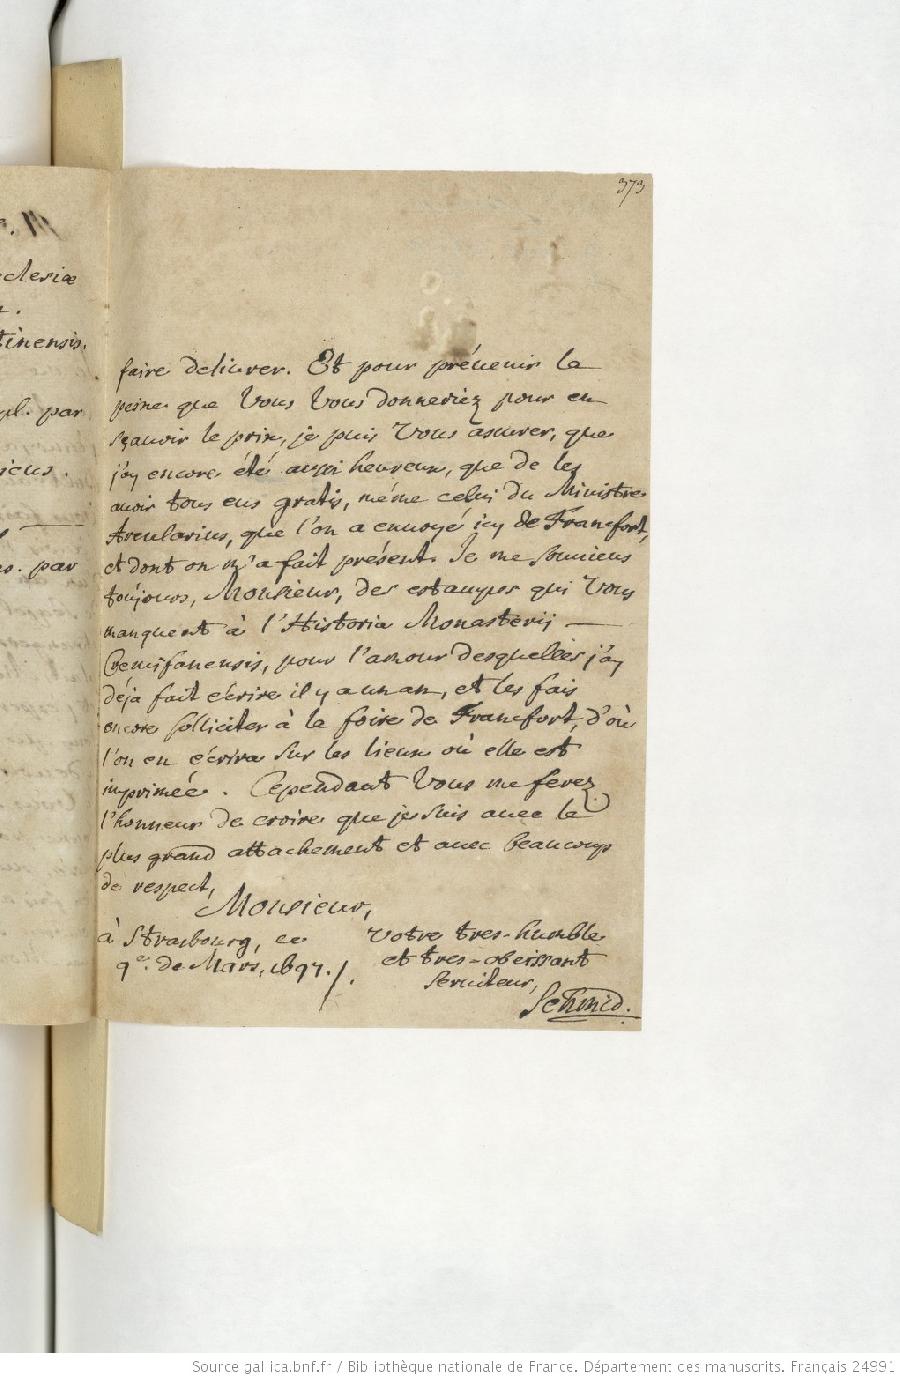 373
cleriæ
tinensis.
pl. par
ieus.
par
faire deliurer. Et pour préuenir la
peine que Vous Vous donneriez pour en
sçauoir le prix, je puis Vous asurer, que
j'ay encore été aussi heureux, que de les
auoir tous eus gratis, méme celuy du Ministre
Arcularius, que l'on a enuoyé icy de Francfort,
et dont on m'a fait présent. Je me souuiens
toûjours, Monsieur, des estampes qui Vous
manquent à l'Historia Monasterij
Cremifanensis, pour l'amour desquelles j'ay
déja fait écrire il y a un an, et les fais
encore solliciter à la foire de Francfort, d'où
l'on en écrira sur les lieux où elle est
imprimée. Cependant Vous me ferez
l'honneur de croire que je suis auec le
plus grand attachement et auec beaucoup
de respect,
Monsieur,
à Strasbourg, ce
9e. de Mars, 1697./.
Votre tres-humble
et tres-obeissant
seruiteur,
Schmid.
Source gallica.bnf.fr / Bibliothèque nationale de France. Département des manuscrits. Français 24991